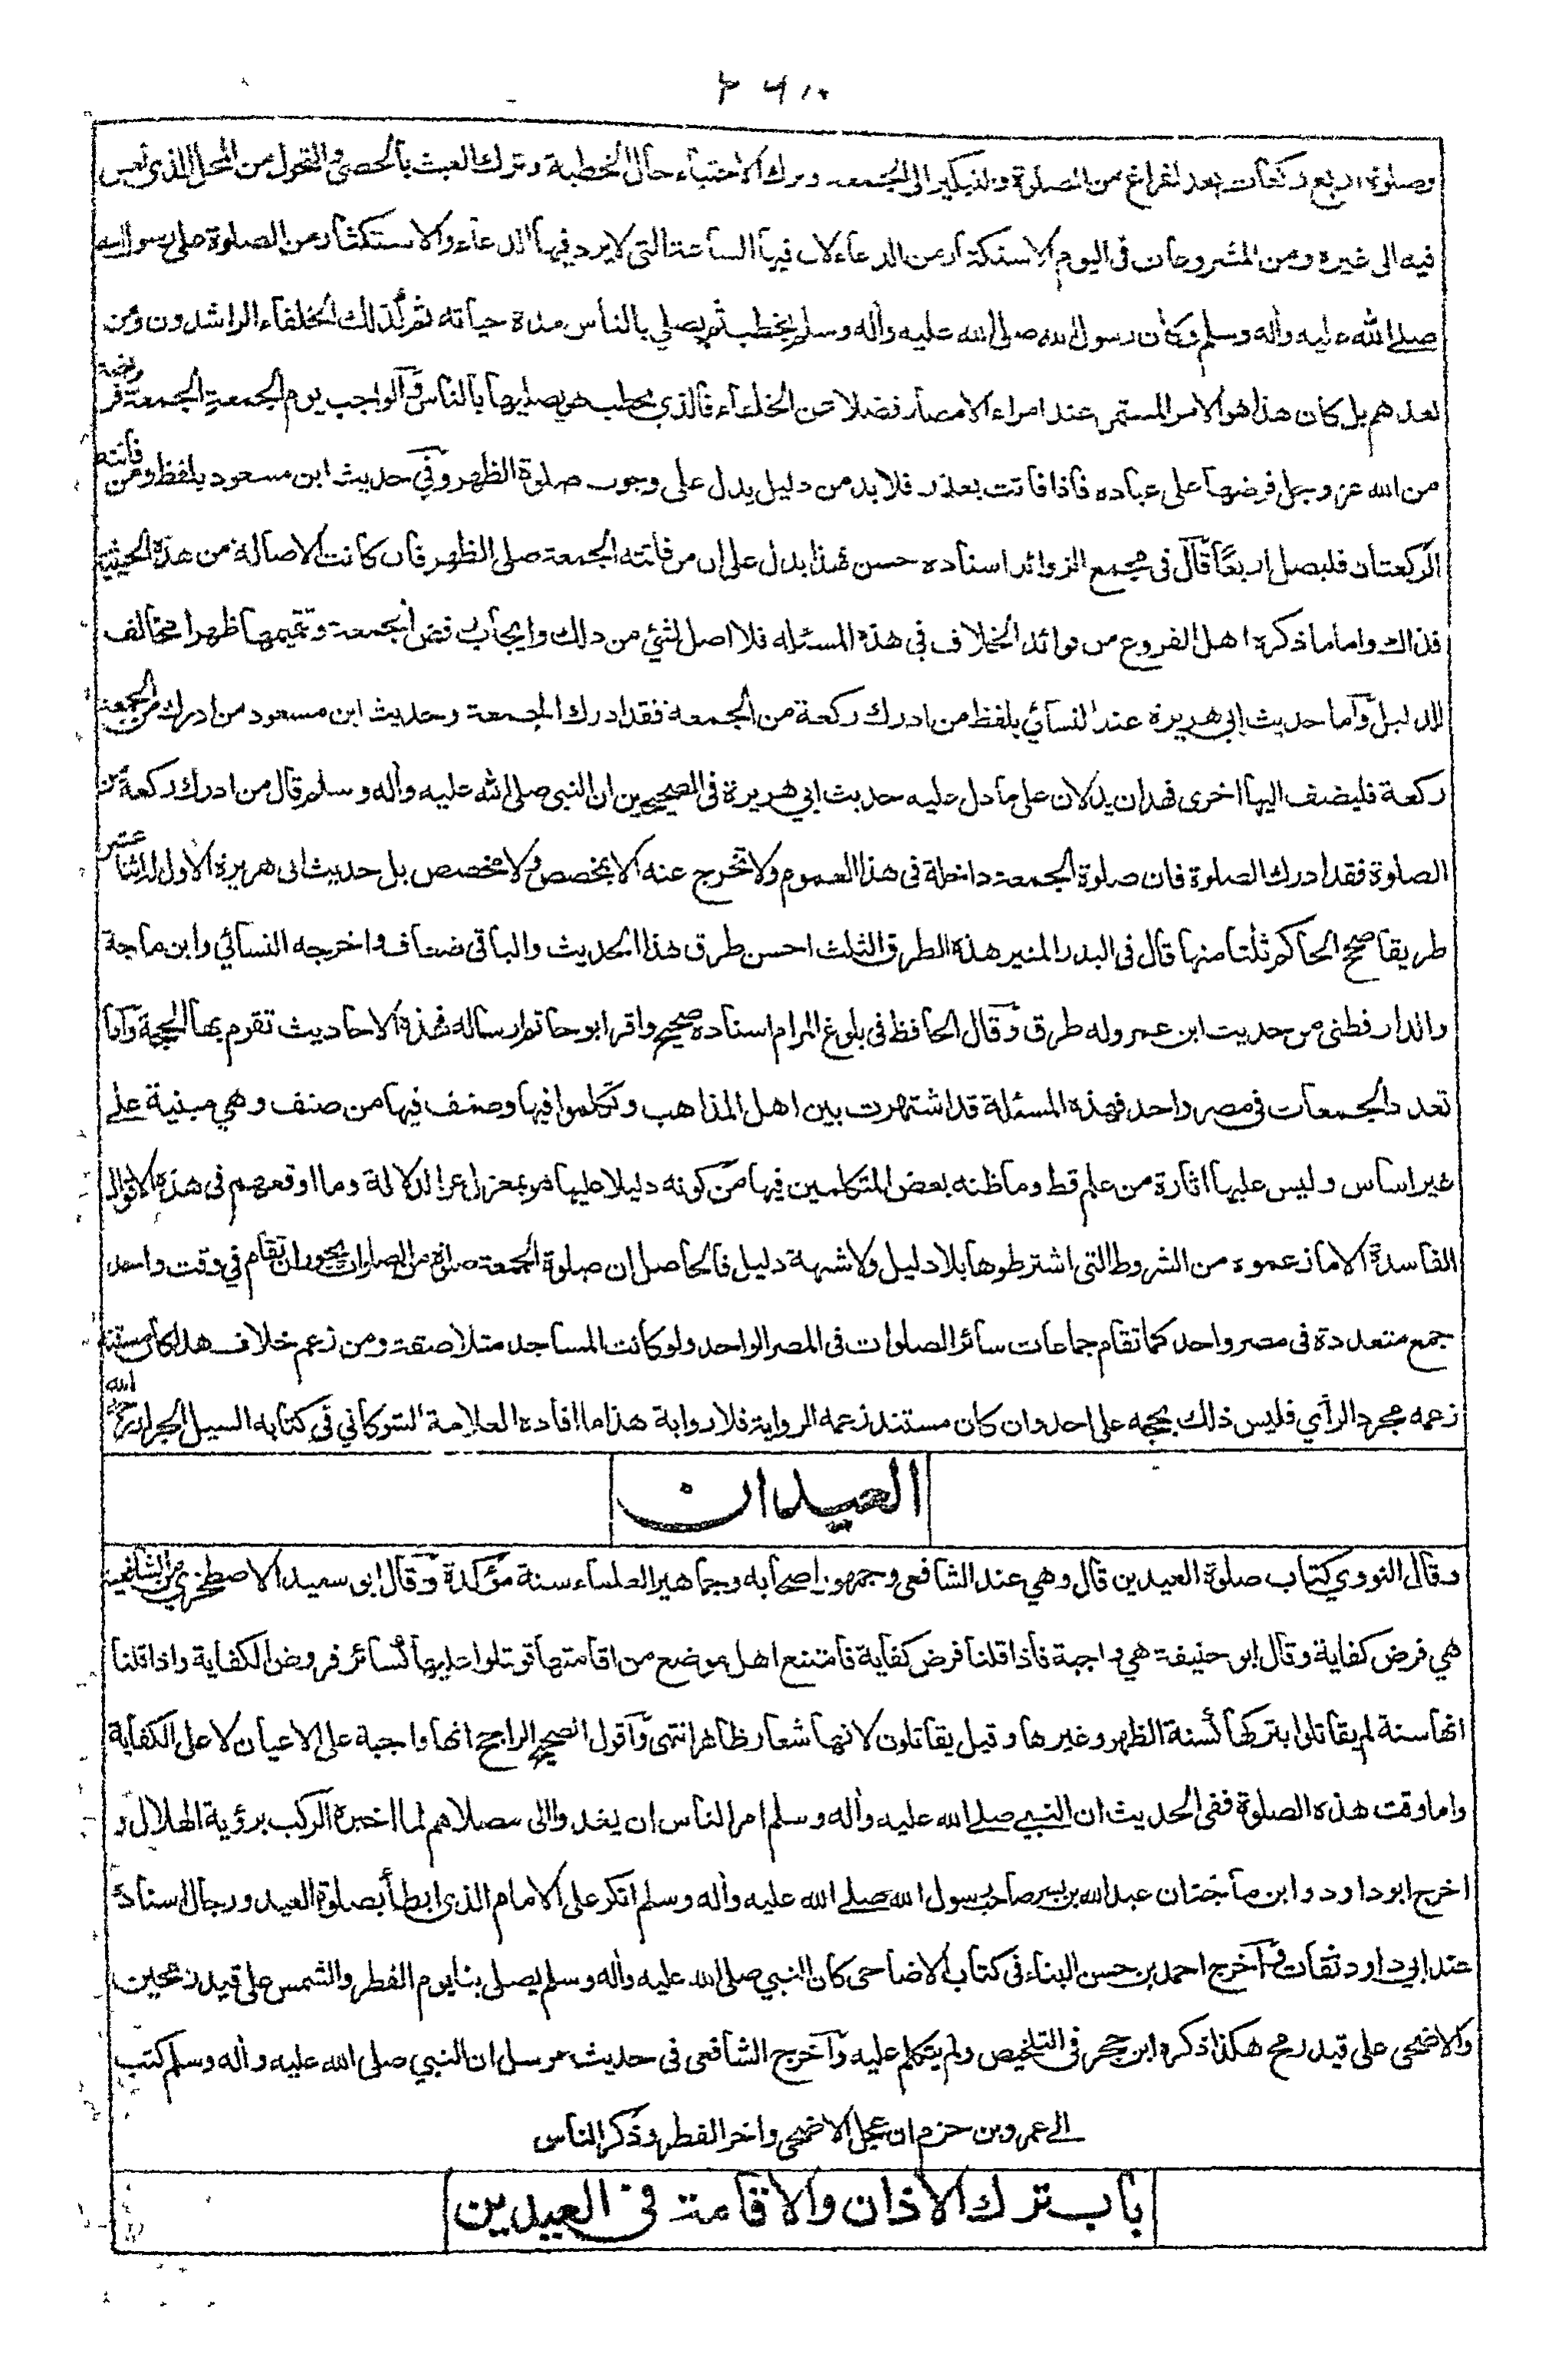 وصلوة اربع ركعات بعد الفراغ من الصلوة والتبكير الى الجمعة وترك الاحتباء حال الخطبة وترك العبث بالحصى والتحول من المحل الذى نعس
فيه الى غيره ومن المشروعات فى اليوم الاستكثار من الدعاء لان فيها الساعة التى لا يرد فيها الدعاء والاستكثار من الصلوة على رسول الله
صلى الله عليه واله وسلم وكان رسول الله صلى الله عليه واله وسلم يخطب ثم يصلي بالناس مدة حياته ثم كذلك الخلفاء الراشدون ومن
بعدهم بل كان هذا هو الامر المستمر عند امراء الامصار فضلا عن الخلفاء فالذي يخطب هو يصليها بالناس والواجب يوم الجمعة الجمعة فريضة
من الله عز وجل فرضها على عباده فاذا فاتت بعذر فلا بد من دليل يدل على وجوب صلوة الظهر وفي حديث ابن مسعود بلفظ ومن فاتته
الركعتان فليصل اربعا قال فى مجمع الزوائد اسناده حسن فهذا يدل على ان من فاتته الجمعة صلى الظهر فان كانت الاصالة من هذه الحيثية
فذاك واما ما ذكره اهل الفروع من فوائد الخلاف في هذه المسئلة فلا اصل لشئ من ذلك وايجاب فض الجمعة وتتميمها ظهرا مخالف
للدليل واما حديث ابي هريرة عند النسائي بلفظ من ادرك ركعة من الجمعة فقد ادرك الجمعة وحديث ابن مسعود من ادرك من الجمعة
ركعة فليضف اليها اخرى فهذان يدلان على ما دل عليه حديث ابي هريرة فى الصحيحين ان النبي صلى الله عليه واله وسلم قال من ادرك ركعة من
الصلوة فقد ادرك الصلوة فان صلوة الجمعة داخلة فى هذا العموم ولا تخرج عنه الا بمخصص ولا مخصص بل حديث ابى هريرة الاول له اثنا عشر
طريقا صحح الحاكم ثلثا منها قال فى البدر المنير هذه الطرق الثلث احسن طرق هذا الحديث والباقى ضعاف واخرجه النسائي وابن ماجة
والدارقطنى من حديث ابن عمر وله طرق وقال الحافظ فى بلوغ المرام اسناده صحيح واقر ابو حاتم ارساله فهذه الاحاديث تقوم بها الحجة واما
تعدد الجمعات فى مصر واحد فهذه المسئلة قد اشتهرت بين اهل المذاهب وتكلموا فيها وصنف فيها من صنف وهي مبنية على
غير اساس وليس عليها اثارة من علم قط وما ظنه بعض المتكلمين فيها من كونه دليلا عليها هو بمعزل عن الدلالة وما اوقعهم فى هذه الاقوال
الفاسدة الا ما زعموه من الشروط التى اشترطوها بلا دليل ولا شبهة دليل فالحاصل ان صلوة الجمعة صلوة من الصلوات يجوز ان تقام في وقت واحد
جمع متعددة فى مصر واحد كما تقام جماعات سائر الصلوات فى المصر الواحد ولو كانت المساجد متلاصقة ومن زعم خلاف هذا كان مستند
زعمه مجرد الرأي فليس ذلك بحجة على احد وان كان مستند زعمه الرواية فلا رواية هذا ما افاده العلامة الشوكاني في كتابه السيل الجرار رحمه الله
العيدان
وقال النووي كتاب صلوة العيدين قال وهي عند الشافعى وجمهور اصحابه وجماهير العلماء سنة مؤكدة وقال ابو سعيد الاصطخري من الشافعية
هي فرض كفاية وقال ابو حنيفة هي واجبة فاذا قلنا فرض كفاية فامتنع اهل موضع من اقامتها قوتلوا عليها كسائر فروض الكفاية واذا قلنا
انها سنة لم يقاتلوا بتركها كسنة الظهر وغيرها وقيل يقاتلون لانها شعار ظاهر انتهى واقول الصحيح الراجح انها واجبة على الاعيان لا على الكفاية
واما وقت هذه الصلوة ففى الحديث ان النبي صلى الله عليه واله وسلم امر الناس ان يغدوا الى مصلاهم لما اخبره الركب برؤية الهلال و
اخرج ابو داود وابن ماجة ان عبد الله بن بسر صاحب رسول الله صلى الله عليه واله وسلم انكر على الامام الذى ابطأ بصلوة العيد ورجال اسناده
عند ابي داود ثقات واخرج احمد بن حسن البناء فى كتاب الاضاحى كان النبي صلى الله عليه واله وسلم يصلى بنا يوم الفطر والشمس على قيد رمحين
والاضحى على قيد رمح هكذا ذكره ابن حجر فى التلخيص ولم يتكلم عليه واخرج الشافعى فى حديث مرسل ان النبي صلى الله عليه واله وسلم كتب
الى عمرو بن حزم ان عجل الاضحى واخر الفطر وذكر الناس
باب ترك الاذان والاقامة فى العيدين